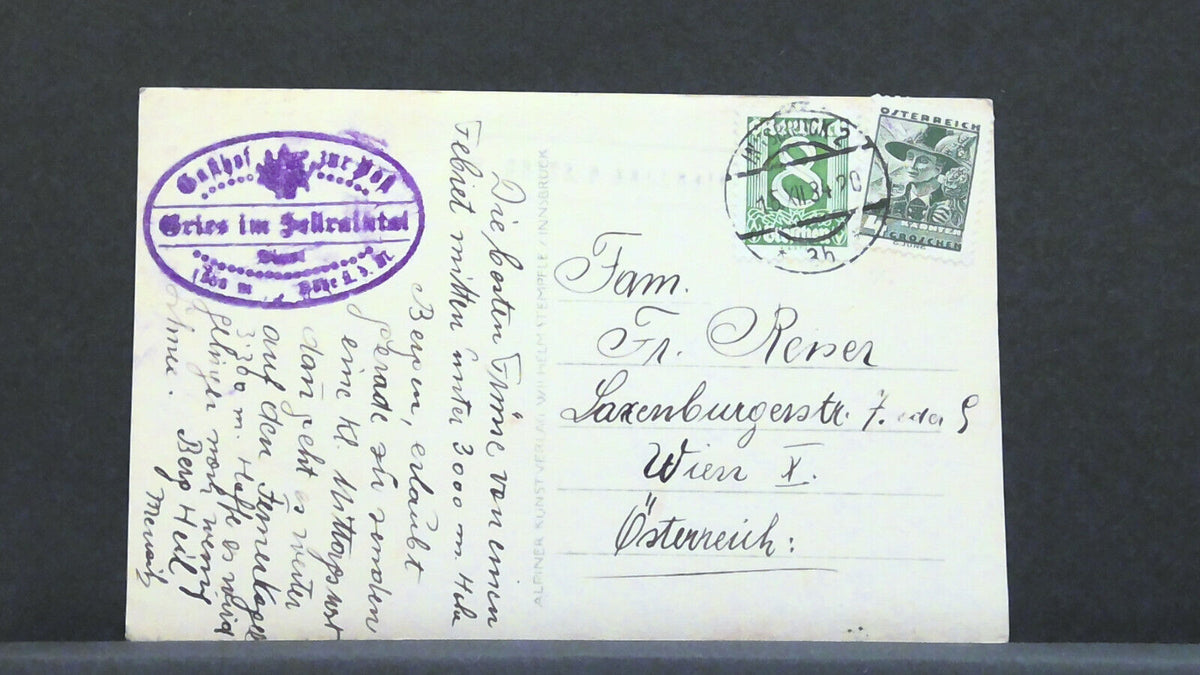 Gasthof zur Post
Gries im Sellraintal
Tirol
Höhe ü. d. M.
Die besten Grüße von einem
Gebiet mitten unter 3000 m. Hohe
Bergen, erlaubt
gerade zu senden
eine kl. Mittagsrast
dann geht es weiter
auf den Fernerkogel
3.300 m. Hoffe es wird
Berg Heil
ALPINER KUNSTVERLAG WILHELM STEMPFLE / INNSBRUCK
INNSBRUCK 2
15.XII.34 20
* 2b
8
Groschen
ÖSTERREICH
KÄRNTEN
GROSCHEN
Fam.
Fr. Reiser
Laxenburgerstr. 7. oder 9
Wien X.
Österreich: